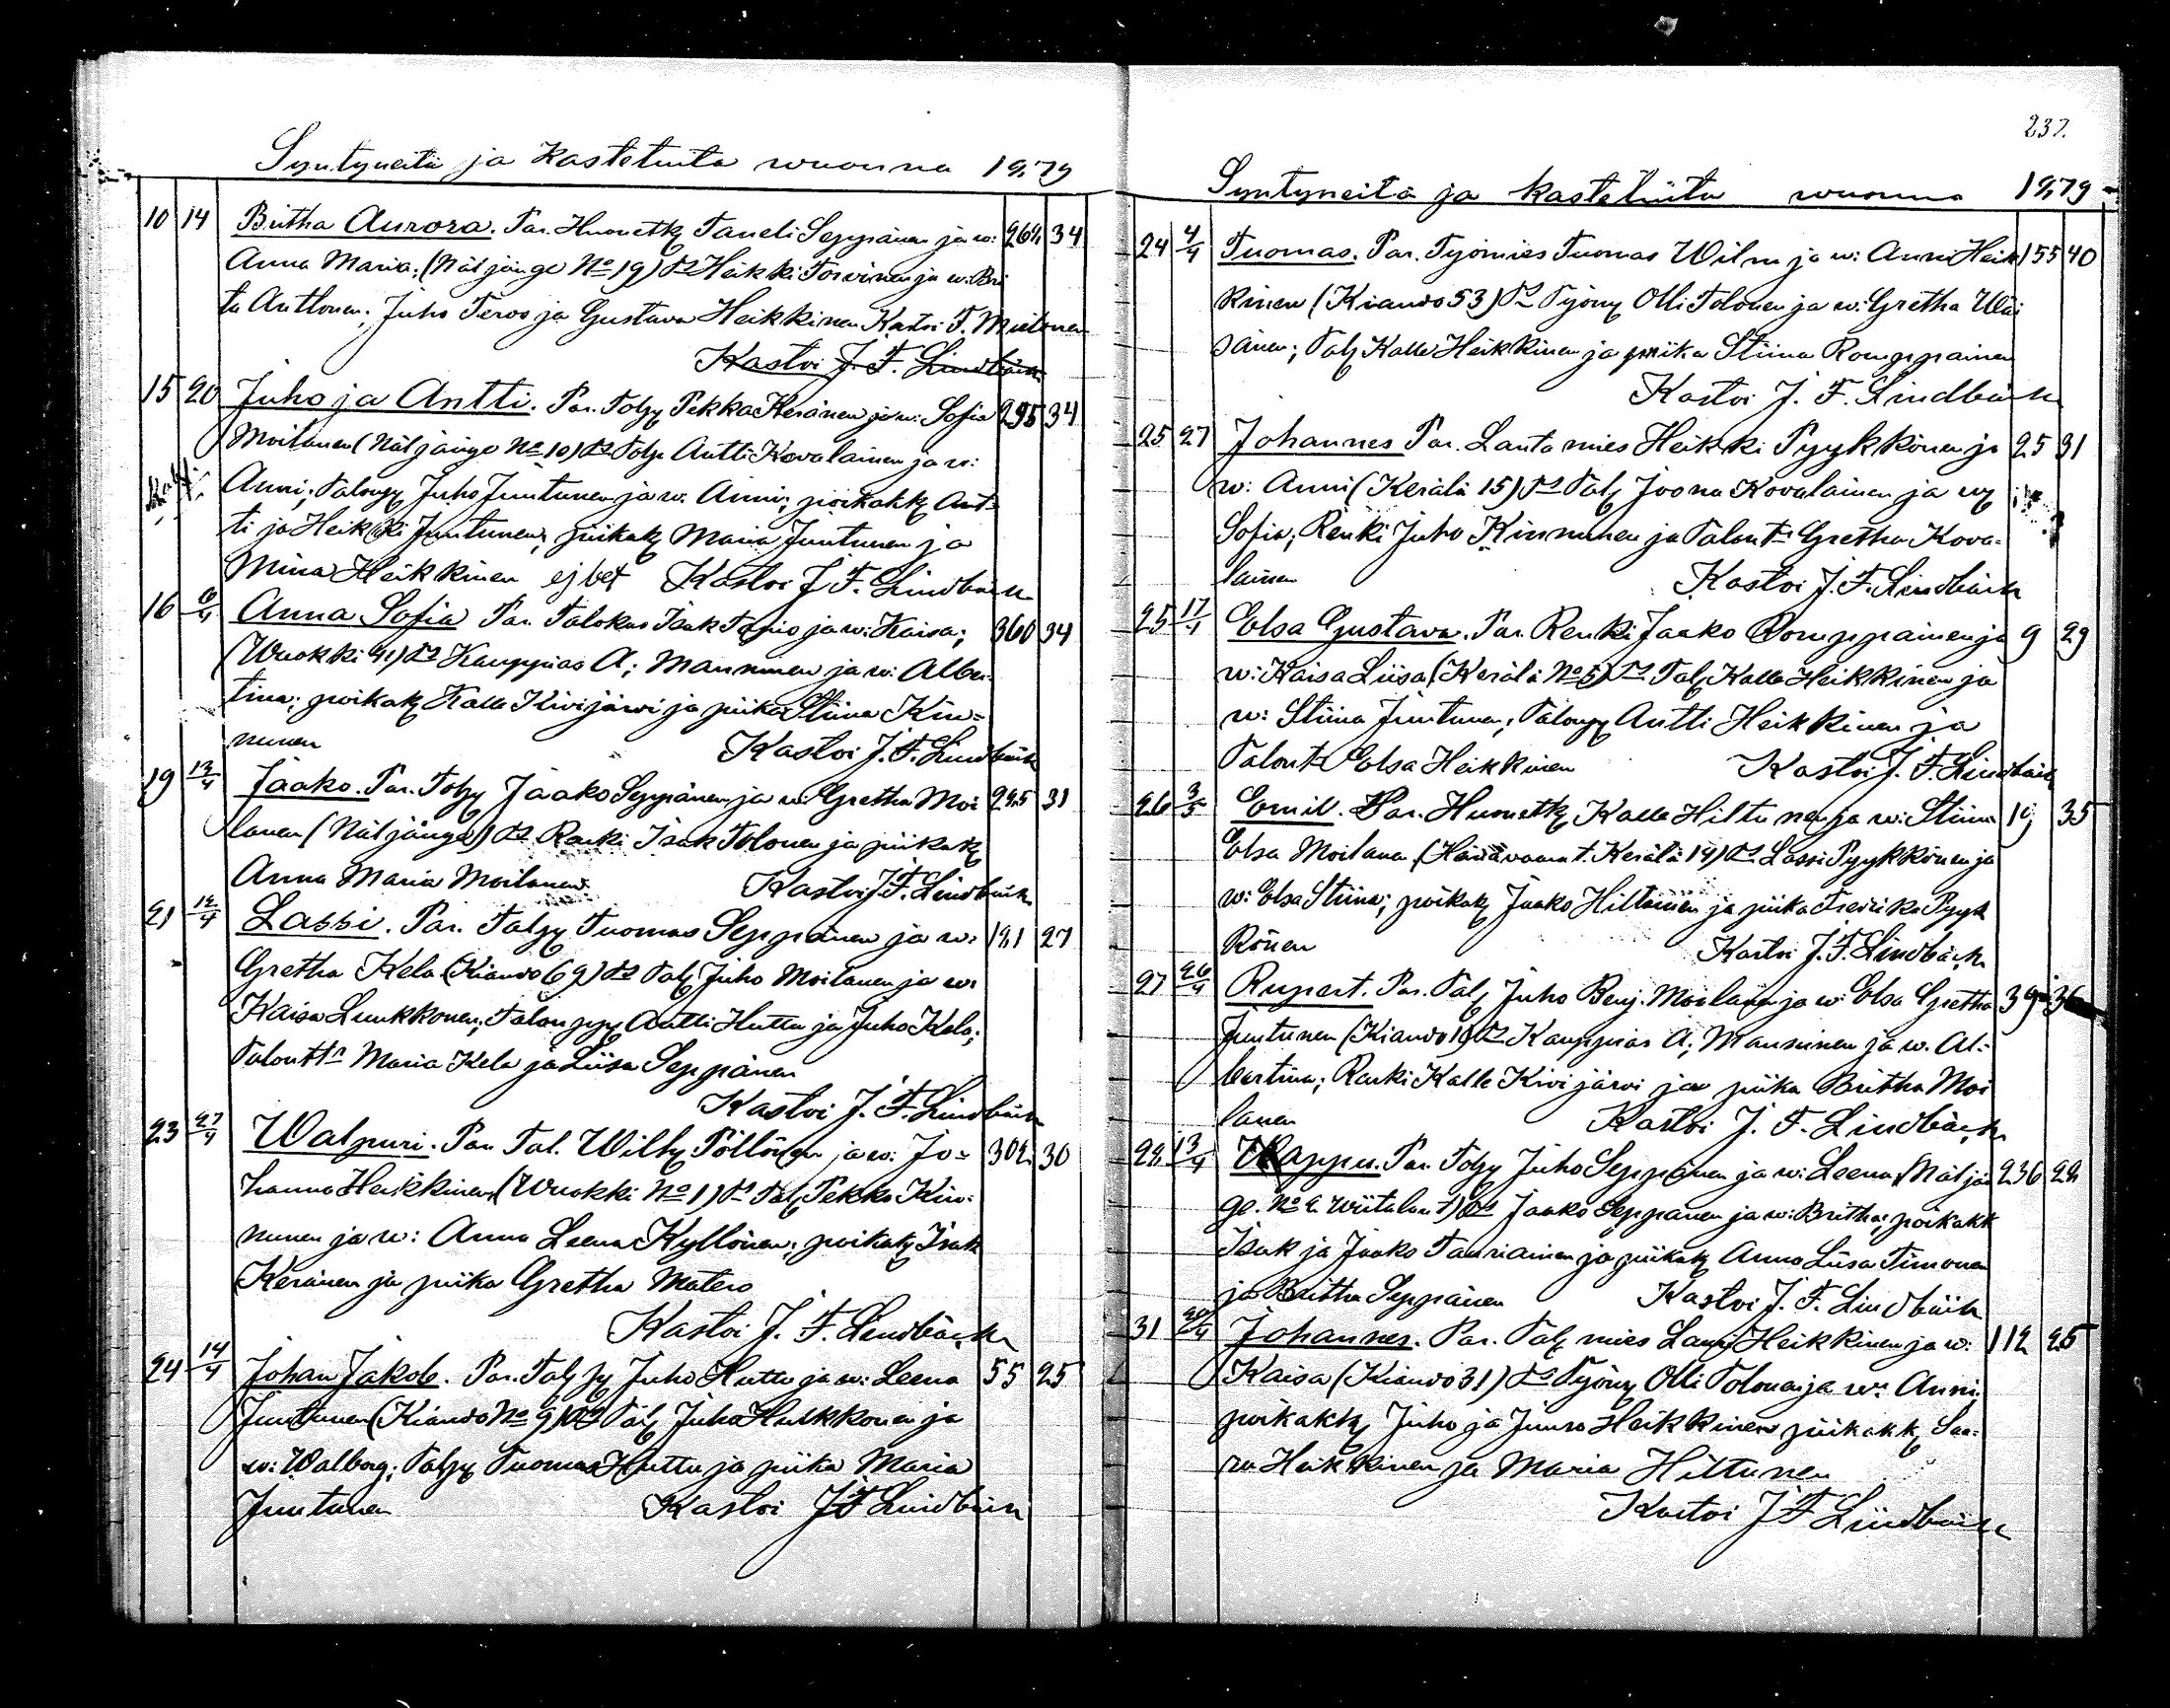 237.
Syntyneitä ja Kastetuita wuonna 1879
10 14 Britha Aurora. Par. Huonetk Taneli Seppänen ja w: 262 34
Anna Maria; (Näljänge No 19) Heikki Torvinen ja w: Bri
ta Anttonen; Juho Tervo ja Gustava Heikkinen Kastoi T. Miilonen
Kastoi J. F. Lindbäck
15 20 Juho ja Antti. Par. Talp Pekka Keränen ja w: Sofia 295 34
Moilanen (Näljänge No 10) Talp Antti Kovalainen ja w:
Anni; Talonp Juho Juntunen ja w. Anni; poikakk Ant=
ti ja Heikki Juntunen, piikak Maria Juntunen ja
Mina Heikkinen Kastoi J. F. Lindbäck
16 6/4 Anna Sofia Par. Talokas Isak Tapio ja w: Kaisa; 360 34
(Wuokki 41) Kauppias A; Manninen ja w: Alber
tina; poikak Kalle Kivijärvi ja piika Stiina Kin=
nunen Kastoi J. F. Lindbäck
19 13/4 Jaako. Par. Talp Jaako Seppänen ja w: Gretha Moi 285 31
lanen (Näljänge) Renki Isak Tolonen ja piikak
Anna Maria Moilanen Kastoi J. F. Lindbäck
21 12/4 Lassi. Par. Talp Tuomas Seppänen ja w: 181 27
Gretha Kela (Kiando 69) Tal Juho Moilanen ja w:
Kaisa Luukkonen; Talonp Antti Huttu ja Juho Kela;
Talontt Maria Kela ja Liisa Seppänen
Kastoi J. F. Lindbäck
23 27/4 Walpuri. Par. Tal. Wilh Pöllönen ja w: Jo= 302 30
hanna Heikkinen (Wuokki No 1) Tal Pekka Kin=
nunen ja w: Anna Leena Kyllönen; poikak Isak
Keränen ja piika Gretha Matero
Kastoi J. F. Lindbäck
24 14/4 Johan Jakob. Par. Talp Juho Huttu ja w: Leena 55 25
Juntunen (Kiando No 9) Tal Juho Hulkkonen ja
w: Walborg; Talp Tuomas Huttu ja piika Maria
Juntunen Kastoi J F Lindbäck
Syntyneitä ja kastetuita wuonna 1879
24 4/4 Tuomas. Par. Työmies Tuomas Wilm ja w: Anni Heik 155 40
kinen (Kiando 53) Työm Olli Tolonen ja w: Gretha Wäi
sänen; Tal Kalle Heikkinen ja piika Stiina Romppainen
Kastoi J. F. Lindbäck
25 27 Johannes Par. Lautamies Heikki Pyykkönen ja 25 31
w: Anni (Kerälä 15) Tal Joona Kovalainen ja w
Sofia; Renki Juho Kinnunen ja Talont Gretha Kova=
lainen Kastoi J. F. Lindbäck
25 17/4 Elsa Gustava. Par. Renki Jaako Romppainen ja 9 29
w: Kaisa Liisa (Kerälä No 5) Tal Kalle Heikkinen ja
w: Stiina Juntunen; Talonp Antti Heikkinen ja
Talont Elsa Heikkinen Kastoi J. F. Lindbäck
26 3/5 Emil. Par. Huonetk Kalle Hiltunen ja w: Stiina 19 35
Elsa Moilanen (Kerälä 14) Lassi Pyykkönen ja
w: Elsa Stiina; poikak Jaako Hiltunen ja piika Fredrika Pyyk
könen Kastoi J. F. Lindbäck
27 26/4 Rupert. Par. Tal Juho Benj. Moilanen ja w: Elsa Gretha 39 36
Juntunen (Kiando 19) Kauppias A; Manninen ja w. Al=
bertina; Renki Kalle Kivijärvi ja piika Britha Moi
lanen Kastoi J. F. Lindbäck
28 13/4 Wappu. Par. Talp Juho Seppänen ja w: Leena (Näljän 236 28
ge. No 2 Wiitalan t) Jaako Seppänen ja w: Britha; poikakk
Isak ja Jaako Tauriainen ja piikak Anna Liisa Timonen
ja Britha Seppänen Kastoi J. F. Lindbäck
31 20/4 Johannes. Par. Tal mies Lauri Heikkinen ja w: 112 25
Kaisa (Kiando 31) Työm Olli Tolonen ja w: Anni;
poikakk Juho ja Juuso Heikkinen piikakk Saa=
ra Heikkinen ja Maria Hiltunen
Kastoi J F Lindbäck